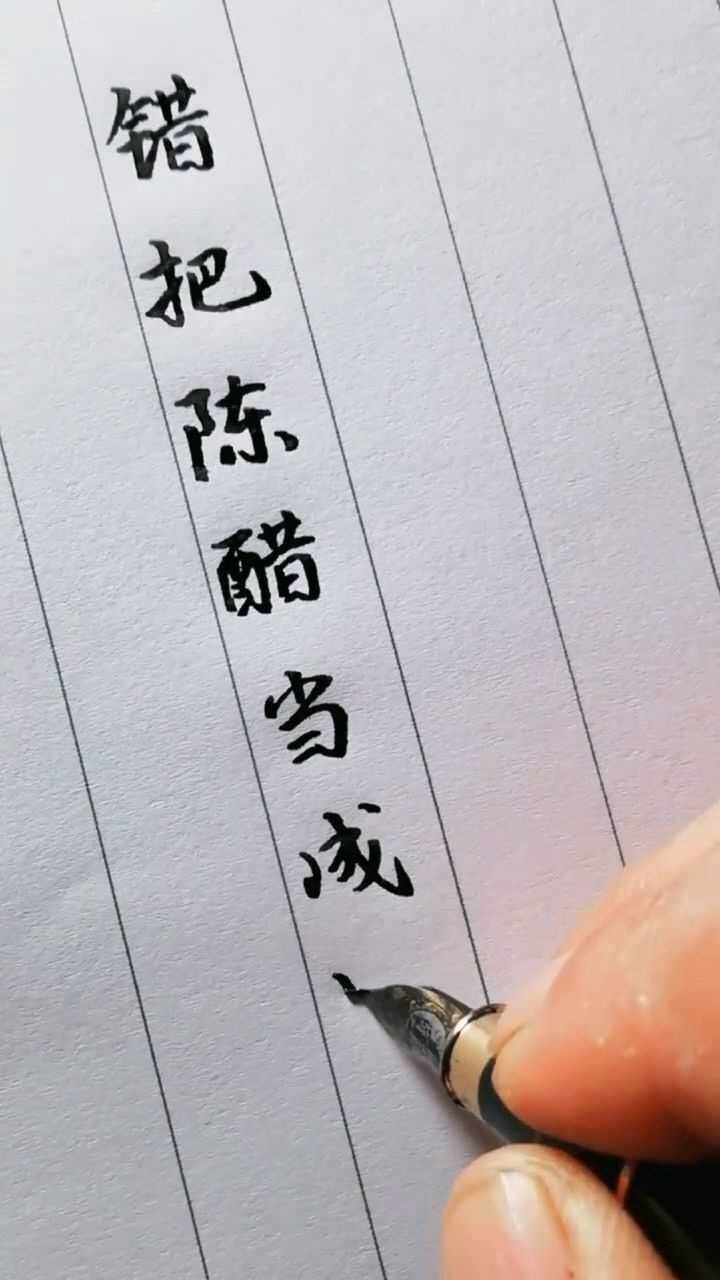 错把陈醋当成